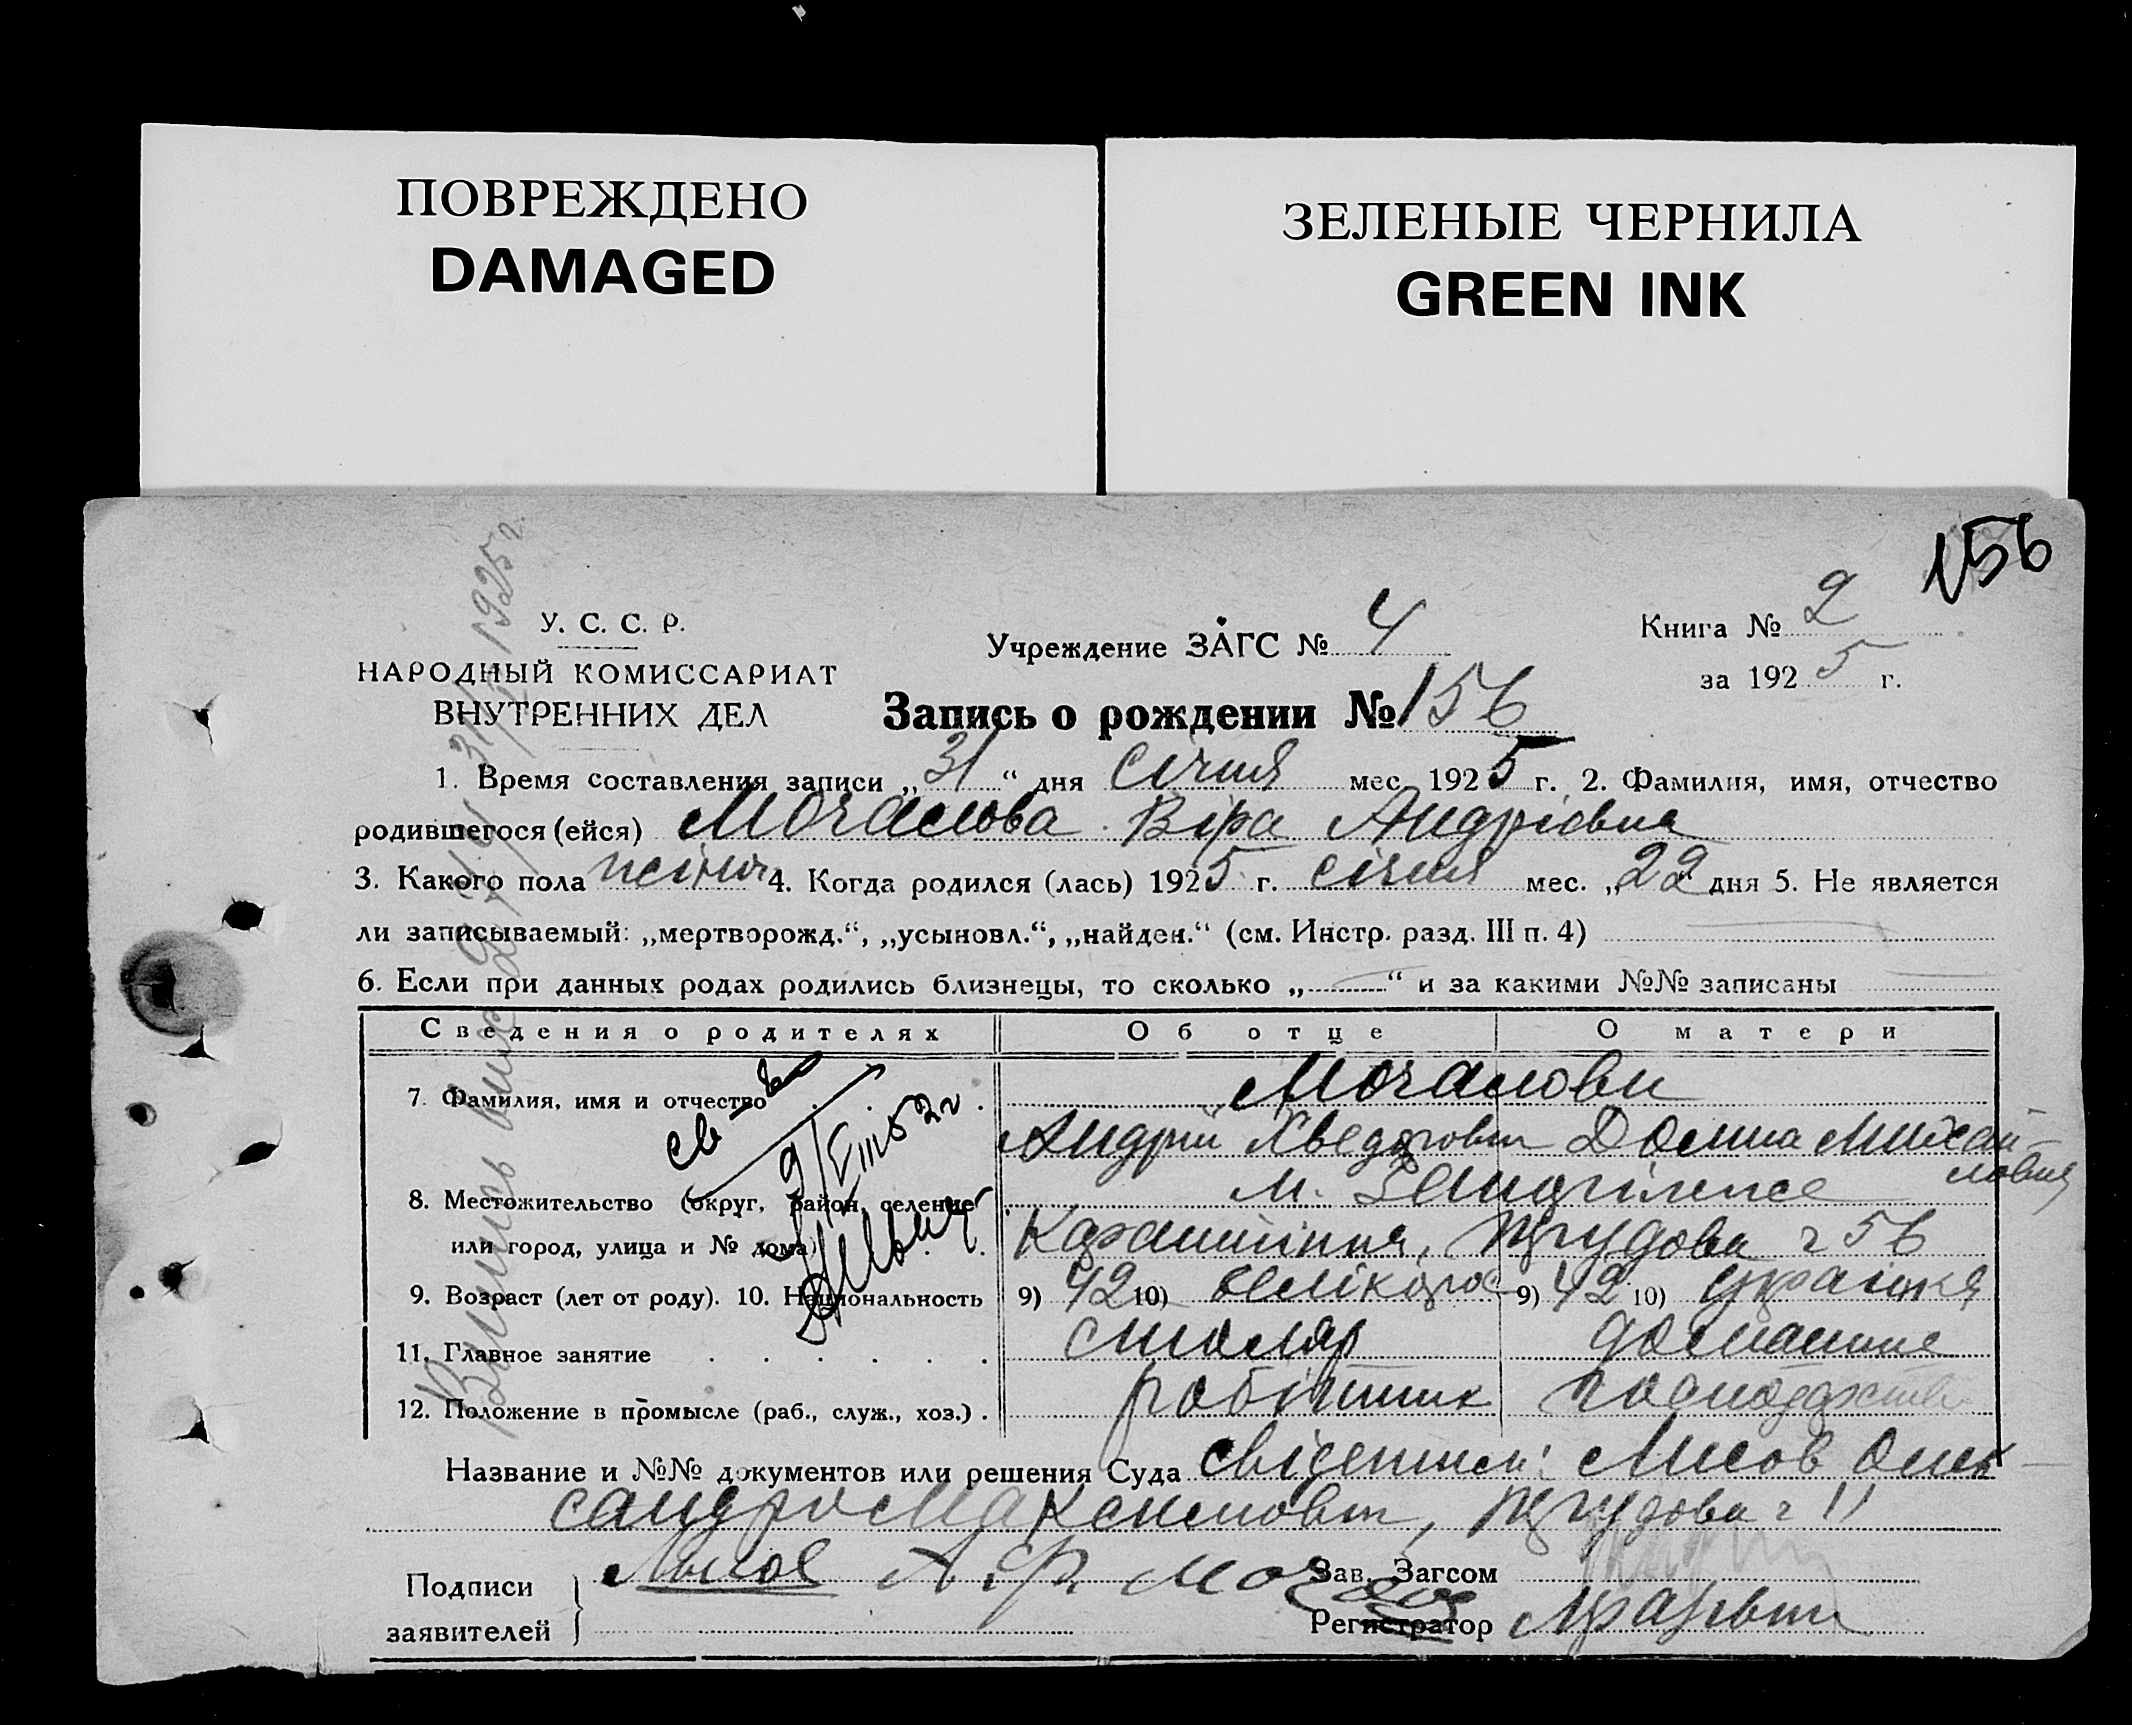 ПОВРЕЖДЕНО
DAMAGED
ЗЕЛЕНЫЕ ЧЕРНИЛА
GREEN INK
156
У. С. С. Р.
НАРОДНЫЙ КОМИССАРИАТ
ВНУТРЕННИХ ДЕЛ
Учреждение ЗАГС № 4
Книга № 2
за 1925 г.
Запись о рождении № 156
1. Время составления записи „31“ дня Січня мес. 1925 г. 2. Фамилия, имя, отчество
родившегося (ейся) Мочалова Віра Андріівна
3. Какого пола жіноч 4. Когда родился (лась) 1925 г. січня мес. „22“ дня 5. Не является
ли записываемый: „мертворожд.“, „усыновл.“, „найден.“ (см. Инстр. разд. III п. 4)
6. Если при данных родах родились близнецы, то сколько „ “ и за какими №№ записаны
Сведения о родителях Об отце О матери
7. Фамилия, имя и отчество Мочалови
Андрій Хведорович Домна Михай-
ловна
8. Местожительство (округ, район, селение
или город, улица и № дома) Трудова 56
9. Возраст (лет от роду). 10. Национальность 9) 42 10) великорос 9) 42 10) Українка
11. Главное занятие столяр домашнє
12. Положение в промысле (раб., служ., хоз.) робітник господарство
Название и №№ документов или решения Суда свідетели: Лисов Олек-
сандр Максимович, Трудова 11
Подписи
заявителей
Лисов А. Ф. Мочалов
Зав. Загсом
Регистратор
31/I 1925 г.